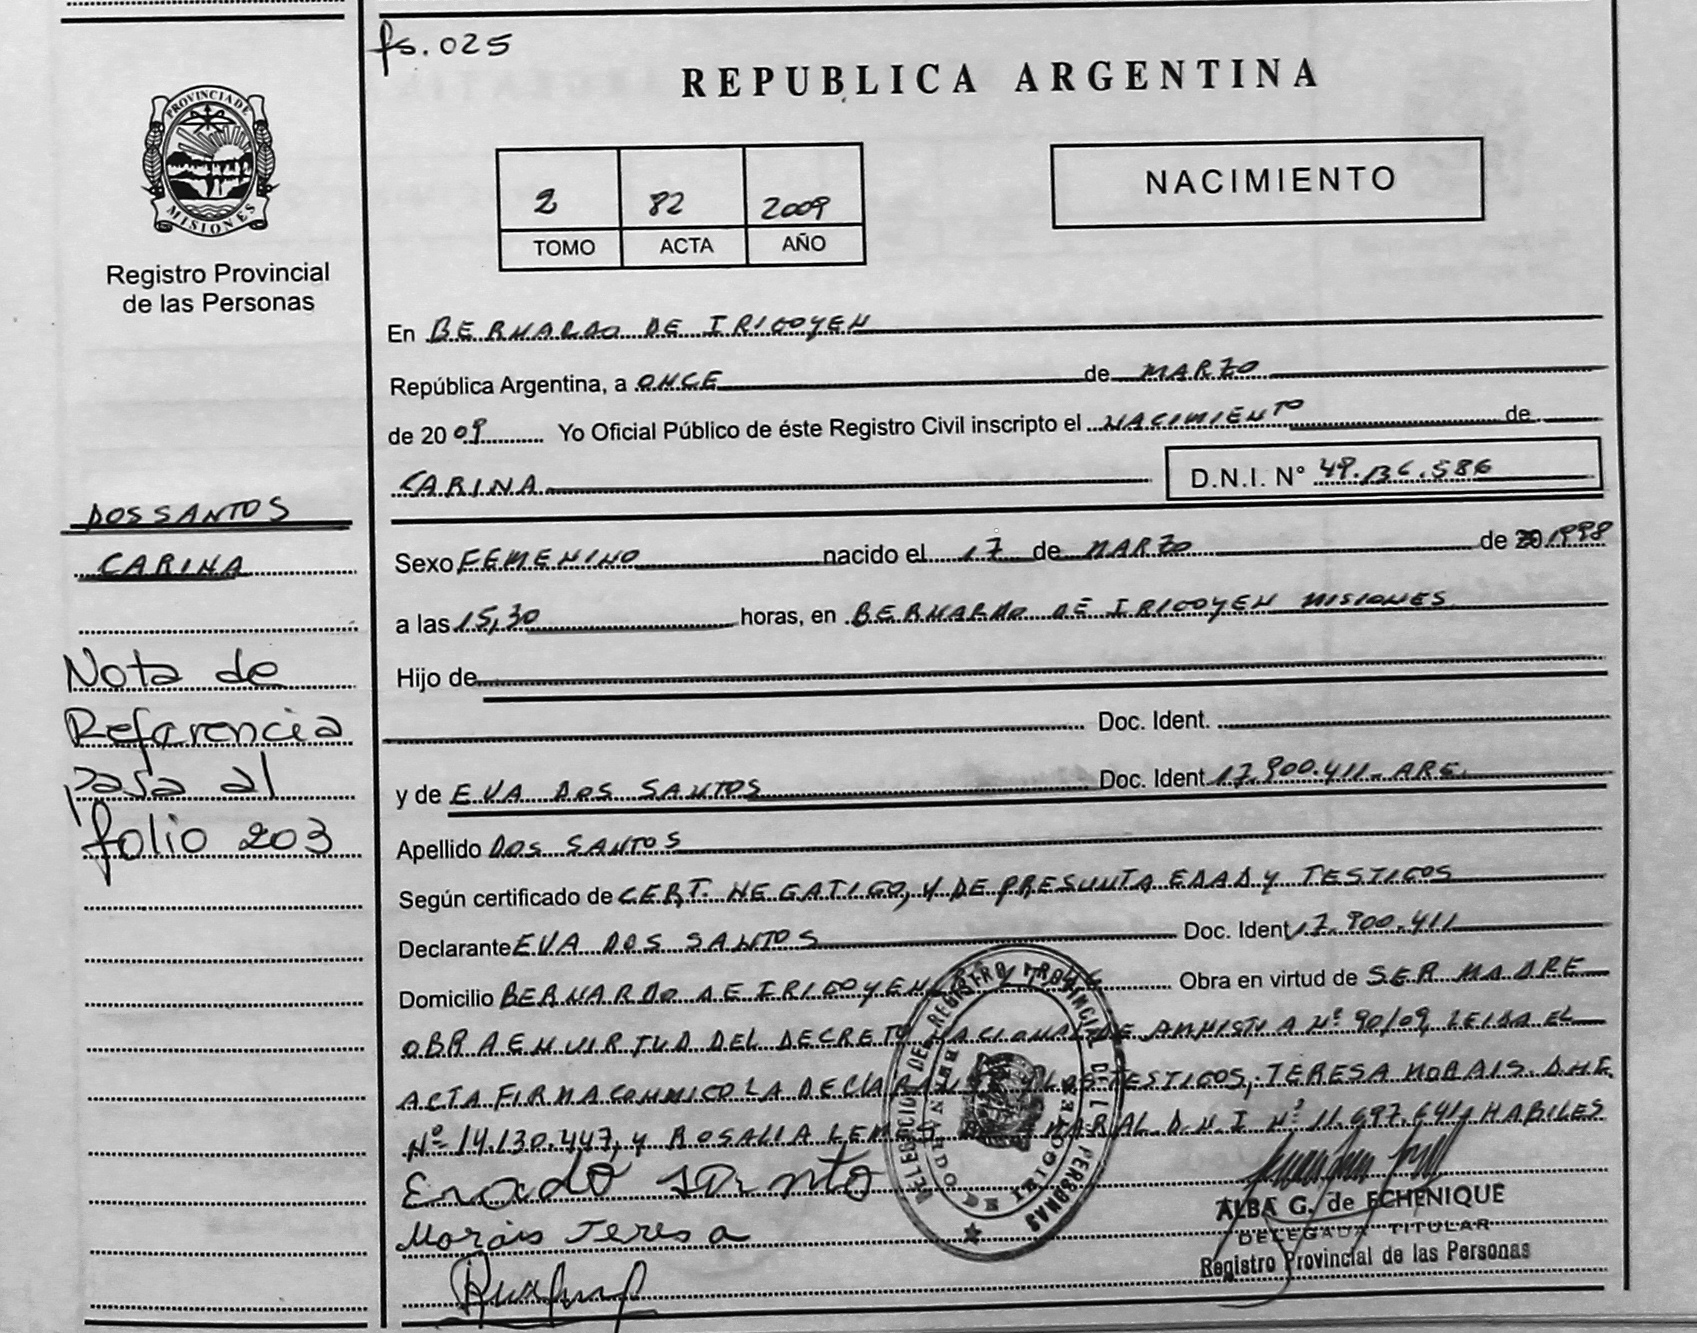 fs. 025
REPUBLICA ARGENTINA
PROVINCIA DE
MISIONES
Registro Provincial
de las Personas
2 82 2009
TOMO ACTA AÑO
NACIMIENTO
En BERNARDO DE IRIGOYEN
República Argentina, a ONCE de MARZO
de 2009 Yo Oficial Público de éste Registro Civil inscripto el NACIMIENTO de
CARINA D.N.I. N° 49.136.586
DOS SANTOS
CARINA
Nota de
Referencia
pasa al
folio 203
Sexo FEMENINO nacido el 17 de MARZO de 20 1998
a las 15,30 horas, en BERNARDO DE IRIGOYEN MISIONES
Hijo de
Doc. Ident.
y de EVA DOS SANTOS Doc. Ident 17.900.411- ARG.
Apellido DOS SANTOS
Según certificado de CERT. NEGATIGO, Y DE PRESUNTA EDAD Y TESTIGOS
Declarante EVA DOS SANTOS Doc. Ident 17.900.411
Domicilio BERNARDO DE IRIGOYEN Obra en virtud de SER MADRE
OBRA EN VIRTUD DEL DECRETO NACIONAL DE AMNISTIA Nº 90/09, LEIDA EL
ACTA FIRMA CONMIGO LA DECLARANTE Y LOS TESTIGOS, TERESA MORAIS. D.N.I.
Nº 14.130.447, Y ROSALIA LEMOS D.N.I Nº 11.697.641, HABILES
DELEGACION DEL REGISTRO PROVINCIAL DE LAS PERSONAS
BERNARDO DE IRIGOYEN
Morais Teresa
ALBA G. de ECHENIQUE
DELEGADA TITULAR
Registro Provincial de las Personas